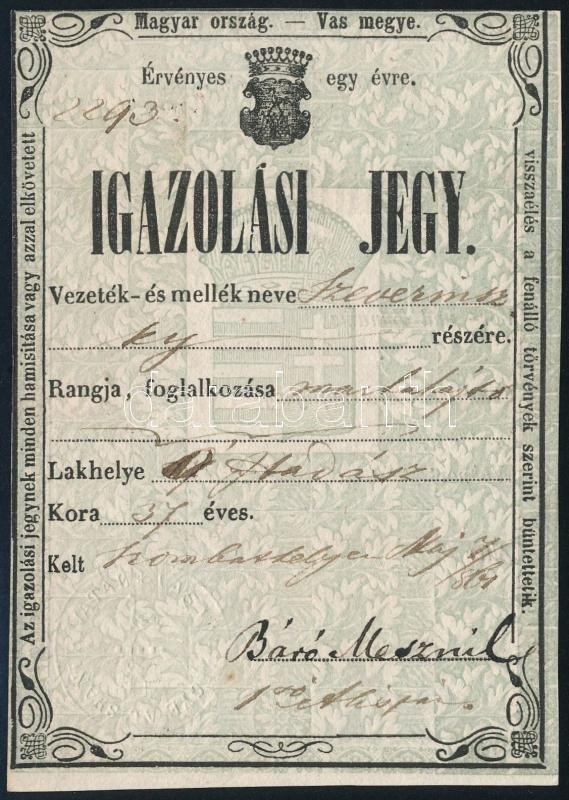 Magyar ország. — Vas megye.
Érvényes egy évre.
2293
IGAZOLÁSI JEGY.
Vezeték- és mellék neve Szeverinsz
ky részére.
Rangja, foglalkozása
Lakhelye Hadász
Kora 37 éves.
Kelt Szombathelyen Máj
Báró Mesznil
Az igazolási jegynek minden hamisitása vagy azzal elkövetett
visszaélés a fenálló törvények szerint büntettetik.
databanth